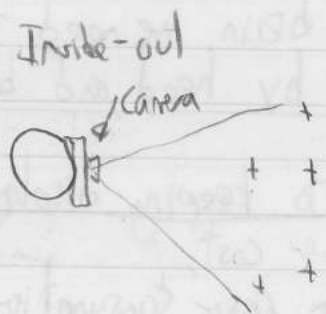 Inside-out
Camera